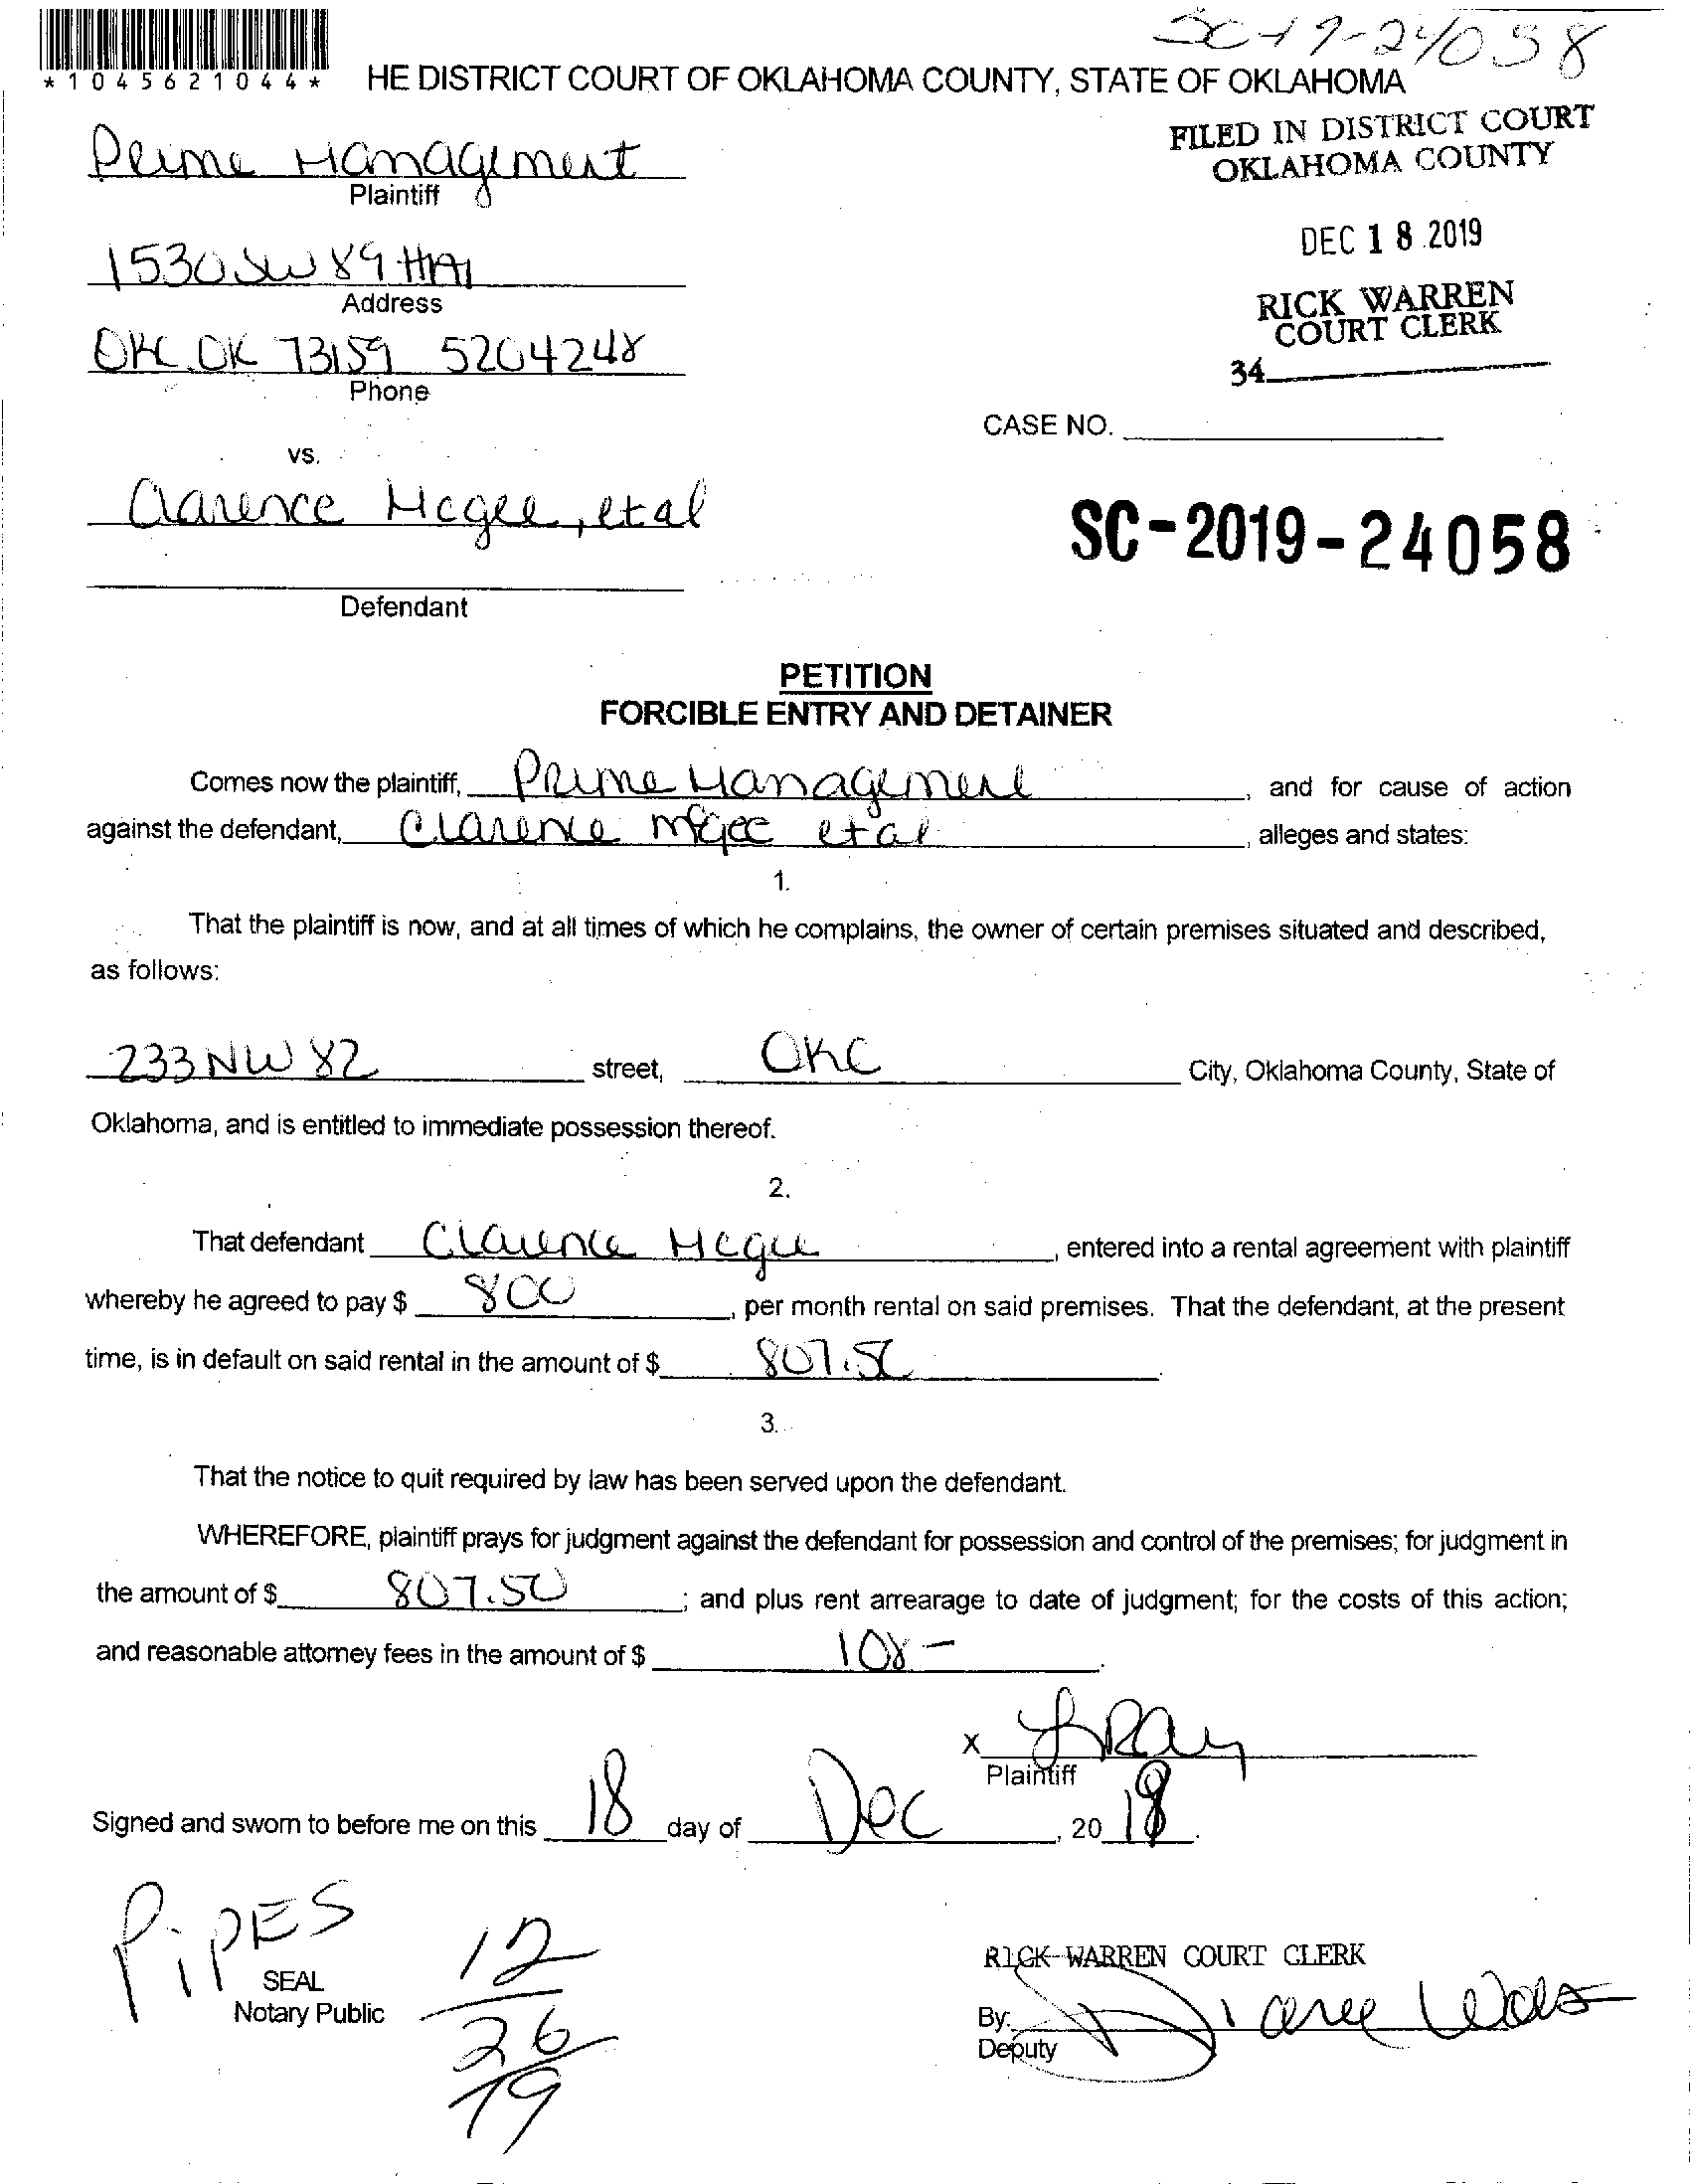 SC-19-24058
*1045621044*
HE DISTRICT COURT OF OKLAHOMA COUNTY, STATE OF OKLAHOMA
FILED IN DISTRICT COURT
OKLAHOMA COUNTY
Prime Management
Plaintiff
DEC 18 2019
1530 SW 89 #A1
Address
RICK WARREN
COURT CLERK
OKC OK 73159 5204248
Phone
34
CASE NO.
vs.
Clarence Mcgee, etal
SC-2019-24058
Defendant
PETITION
FORCIBLE ENTRY AND DETAINER
Comes now the plaintiff, Prime Management, and for cause of action
against the defendant, Clarence Mcgee etal, alleges and states:
1.
That the plaintiff is now, and at all times of which he complains, the owner of certain premises situated and described,
as follows:
233 NW 82 street, OKC City, Oklahoma County, State of
Oklahoma, and is entitled to immediate possession thereof.
2.
That defendant Clarence Mcgee, entered into a rental agreement with plaintiff
whereby he agreed to pay $ 800, per month rental on said premises. That the defendant, at the present
time, is in default on said rental in the amount of $ 807.50.
3.
That the notice to quit required by law has been served upon the defendant.
WHEREFORE, plaintiff prays for judgment against the defendant for possession and control of the premises; for judgment in
the amount of $ 807.50; and plus rent arrearage to date of judgment; for the costs of this action;
and reasonable attorney fees in the amount of $ 108-.
X
Plaintiff
Signed and sworn to before me on this 18 day of Dec, 20
PiPES
12
26
19
SEAL
Notary Public
RICK WARREN COURT CLERK
By:
Deputy